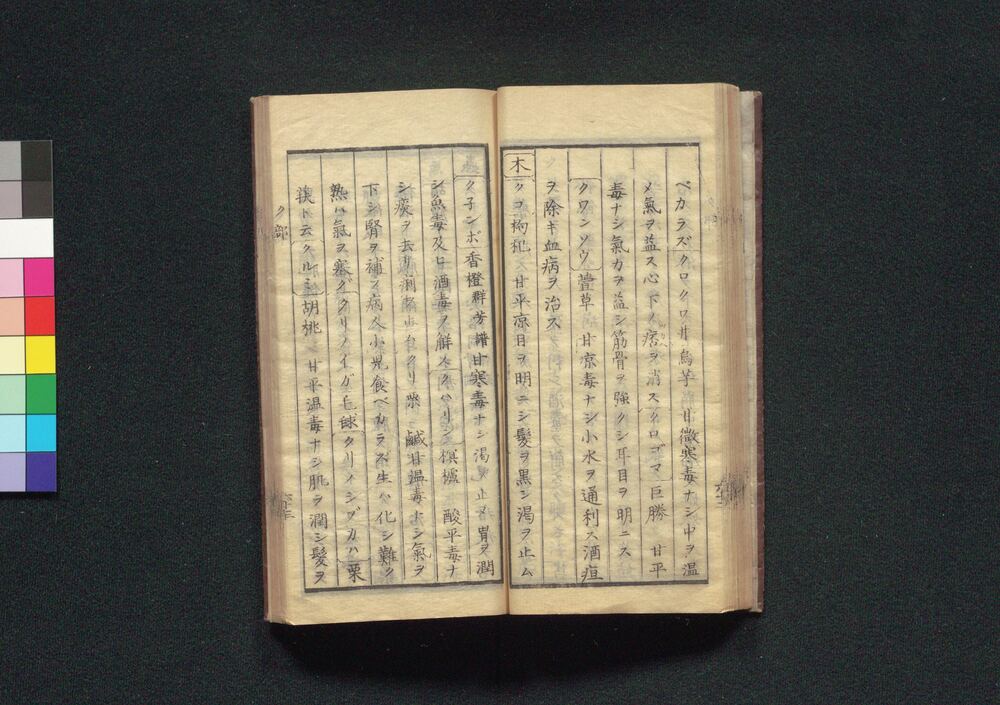 ベカラズクロクワ井烏芋 甘微寒毒ナシ中ヲ温
メ氣ヲ益ス心下ノ痞ヲ消スクロゴマ 巨勝 甘平
毒ナシ氣力ヲ益シ筋骨ヲ強クシ耳目ヲ明ニス
クワンソウ 萱草 甘凉毒ナシ小水ヲ通利ス酒疸
ヲ除キ血病ヲ治ス
木
クコ 枸杞 甘平凉目ヲ明ニシ髪ヲ黒シ渇ヲ止ム
ク子ンボ 香橙 甘寒毒ナシ渇ヲ止メ胃ヲ潤
シ魚毒及ヒ酒毒ヲ解スクハリン 榠樝 酸平毒ナ
シ痰ヲ去リ痢ヲ止 クリ 栗 鹹甘温毒ナシ氣ヲ
下シ腎ヲ補フ病人小児食ベカラズ生ハ化シ難ク
熟ハ氣ヲ塞グクリノイガ 毛毬 クリノシブカハ 栗
ト云クルミ 胡桃 甘平温毒ナシ肌ヲ潤シ髪ヲ
ク部